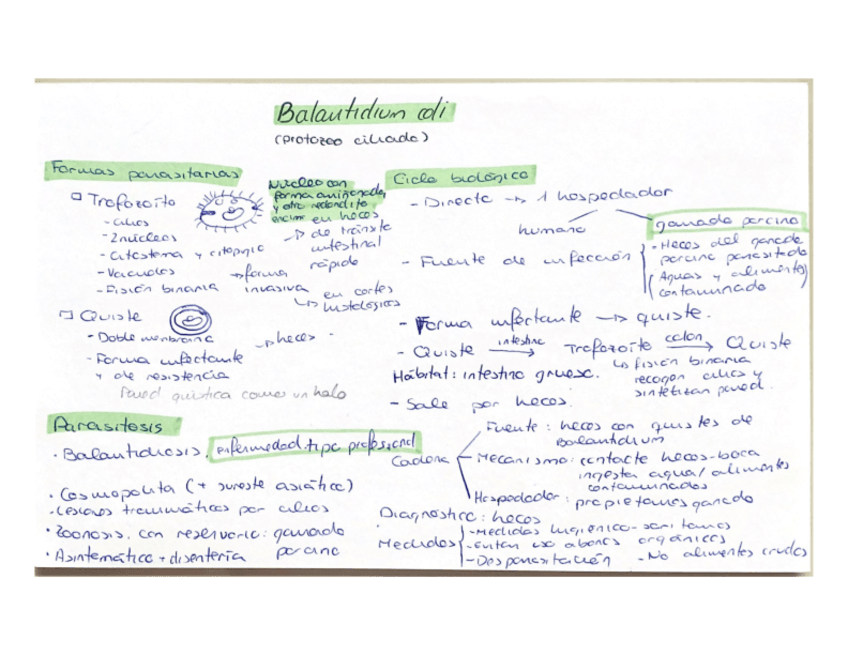 Balantidium coli
(protozoo ciliado)
Formas parasitarias
Trofozoito
- Cilios
- 2 núcleos
- Citostoma y citopigio
- Vacuolas
- Fisión binaria
→ forma
invasiva
Núcleo con
forma arriñonada,
y otro redondito
encima
en heces
↳ de tránsito
intestinal
rápido
↳ en cortes
histológicos
Quiste
- Doble membrana
- Forma infectante
y de resistencia
→ heces
Pared quística como un halo
Parasitosis
· Balantidiosis. enfermedad tipo profesional
· Cosmopolita (+ sureste asiático)
· Lesiones traumáticas por cilios
· Zoonosis, con reservorio: ganado
porcino
· Asintomático → disentería
Ciclo biológico
- Directo → 1 hospedador
humano
ganado porcino
- Fuente de infección
- Heces del ganado
porcino parasitado
Aguas y alimentos
contaminado
- Forma infectante → quiste.
- Quiste intestino → Trofozoito colon → Quiste
↳ fisión binaria
recogen cilios y
sintetizan pared.
Hábitat: intestino grueso.
- Sale por heces.
Cadena
Fuente: heces con quistes de
Balantidium
Mecanismo: contacto heces-boca
ingesta agua/alimentos
contaminados
Hospedador: propietarios ganado
Diagnóstico: heces
Medidas
- Medidas higiénico-sanitarias
- evitar uso abonos orgánicos
- Desparasitación
- No alimentos crudos